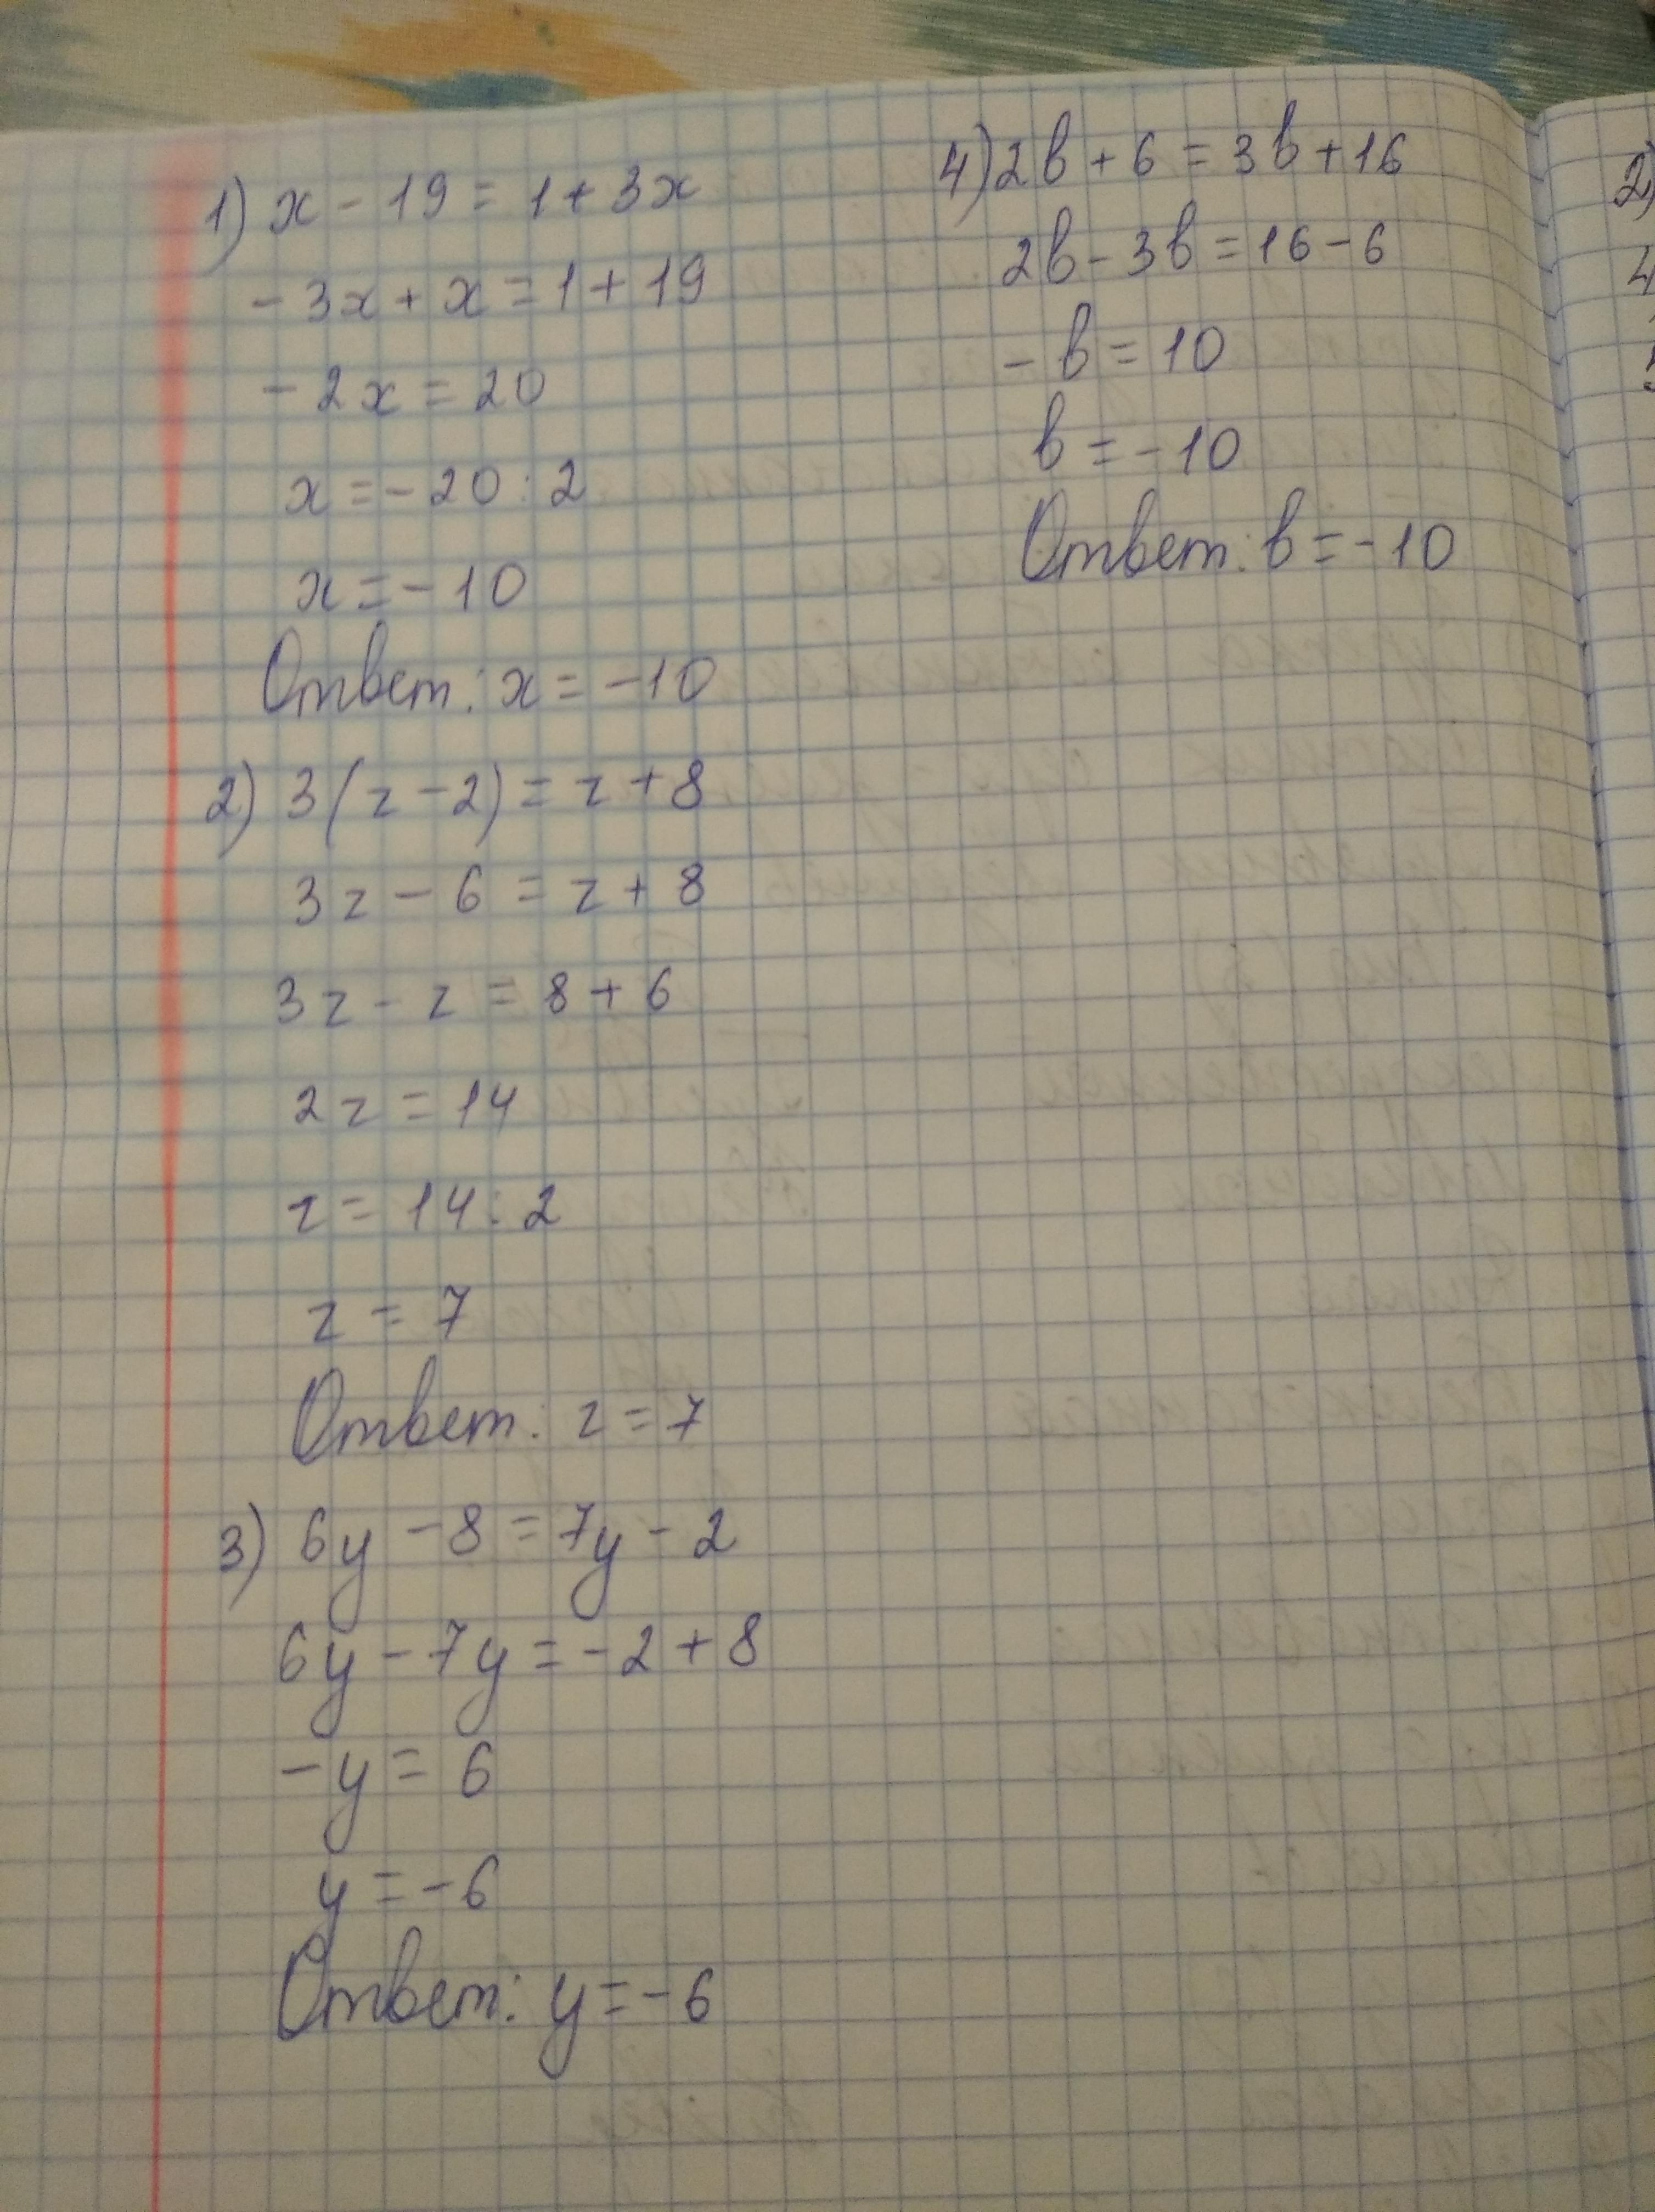 1) x - 19 = 1 + 3x
- 3x + x = 1 + 19
- 2x = 20
x = - 20 : 2
x = - 10
Ответ: x = - 10
2) 3(z - 2) = z + 8
3z - 6 = z + 8
3z - z = 8 + 6
2z = 14
z = 14 : 2
z = 7
Ответ: z = 7
3) 6y - 8 = 7y - 2
6y - 7y = - 2 + 8
- y = 6
y = - 6
Ответ: y = - 6
4) 2b + 6 = 3b + 16
2b - 3b = 16 - 6
- b = 10
b = - 10
Ответ: b = - 10
2)
4